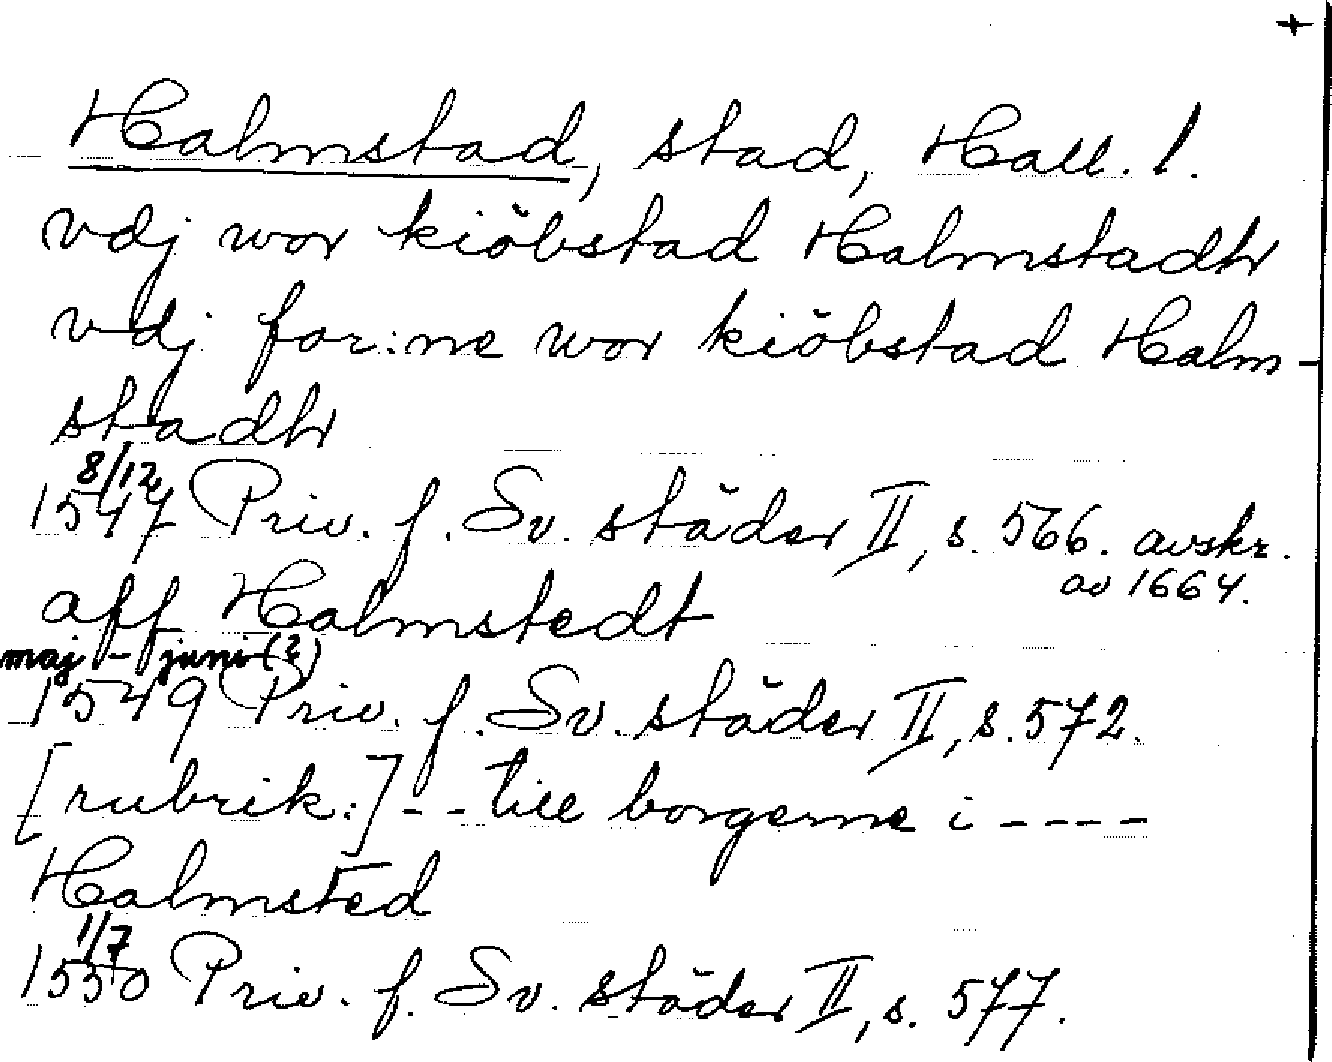 +
Halmstad, stad, Hall. l.
vdj wor kiöbstad Halmstadtr
vdj for:ne wor kiöbstad Halm-
stadtr
8/12
1547 Priv. f. Sv. städer II, s. 566. avskr.
av 1664.
aff Halmstedt
maj - juni (?)
1549 Priv. f. Sv. städer II, s. 572.
[rubrik:] - - till borgerne i - - - -
Halmsted
1/7
1550 Priv. f. Sv. städer II, s. 577.